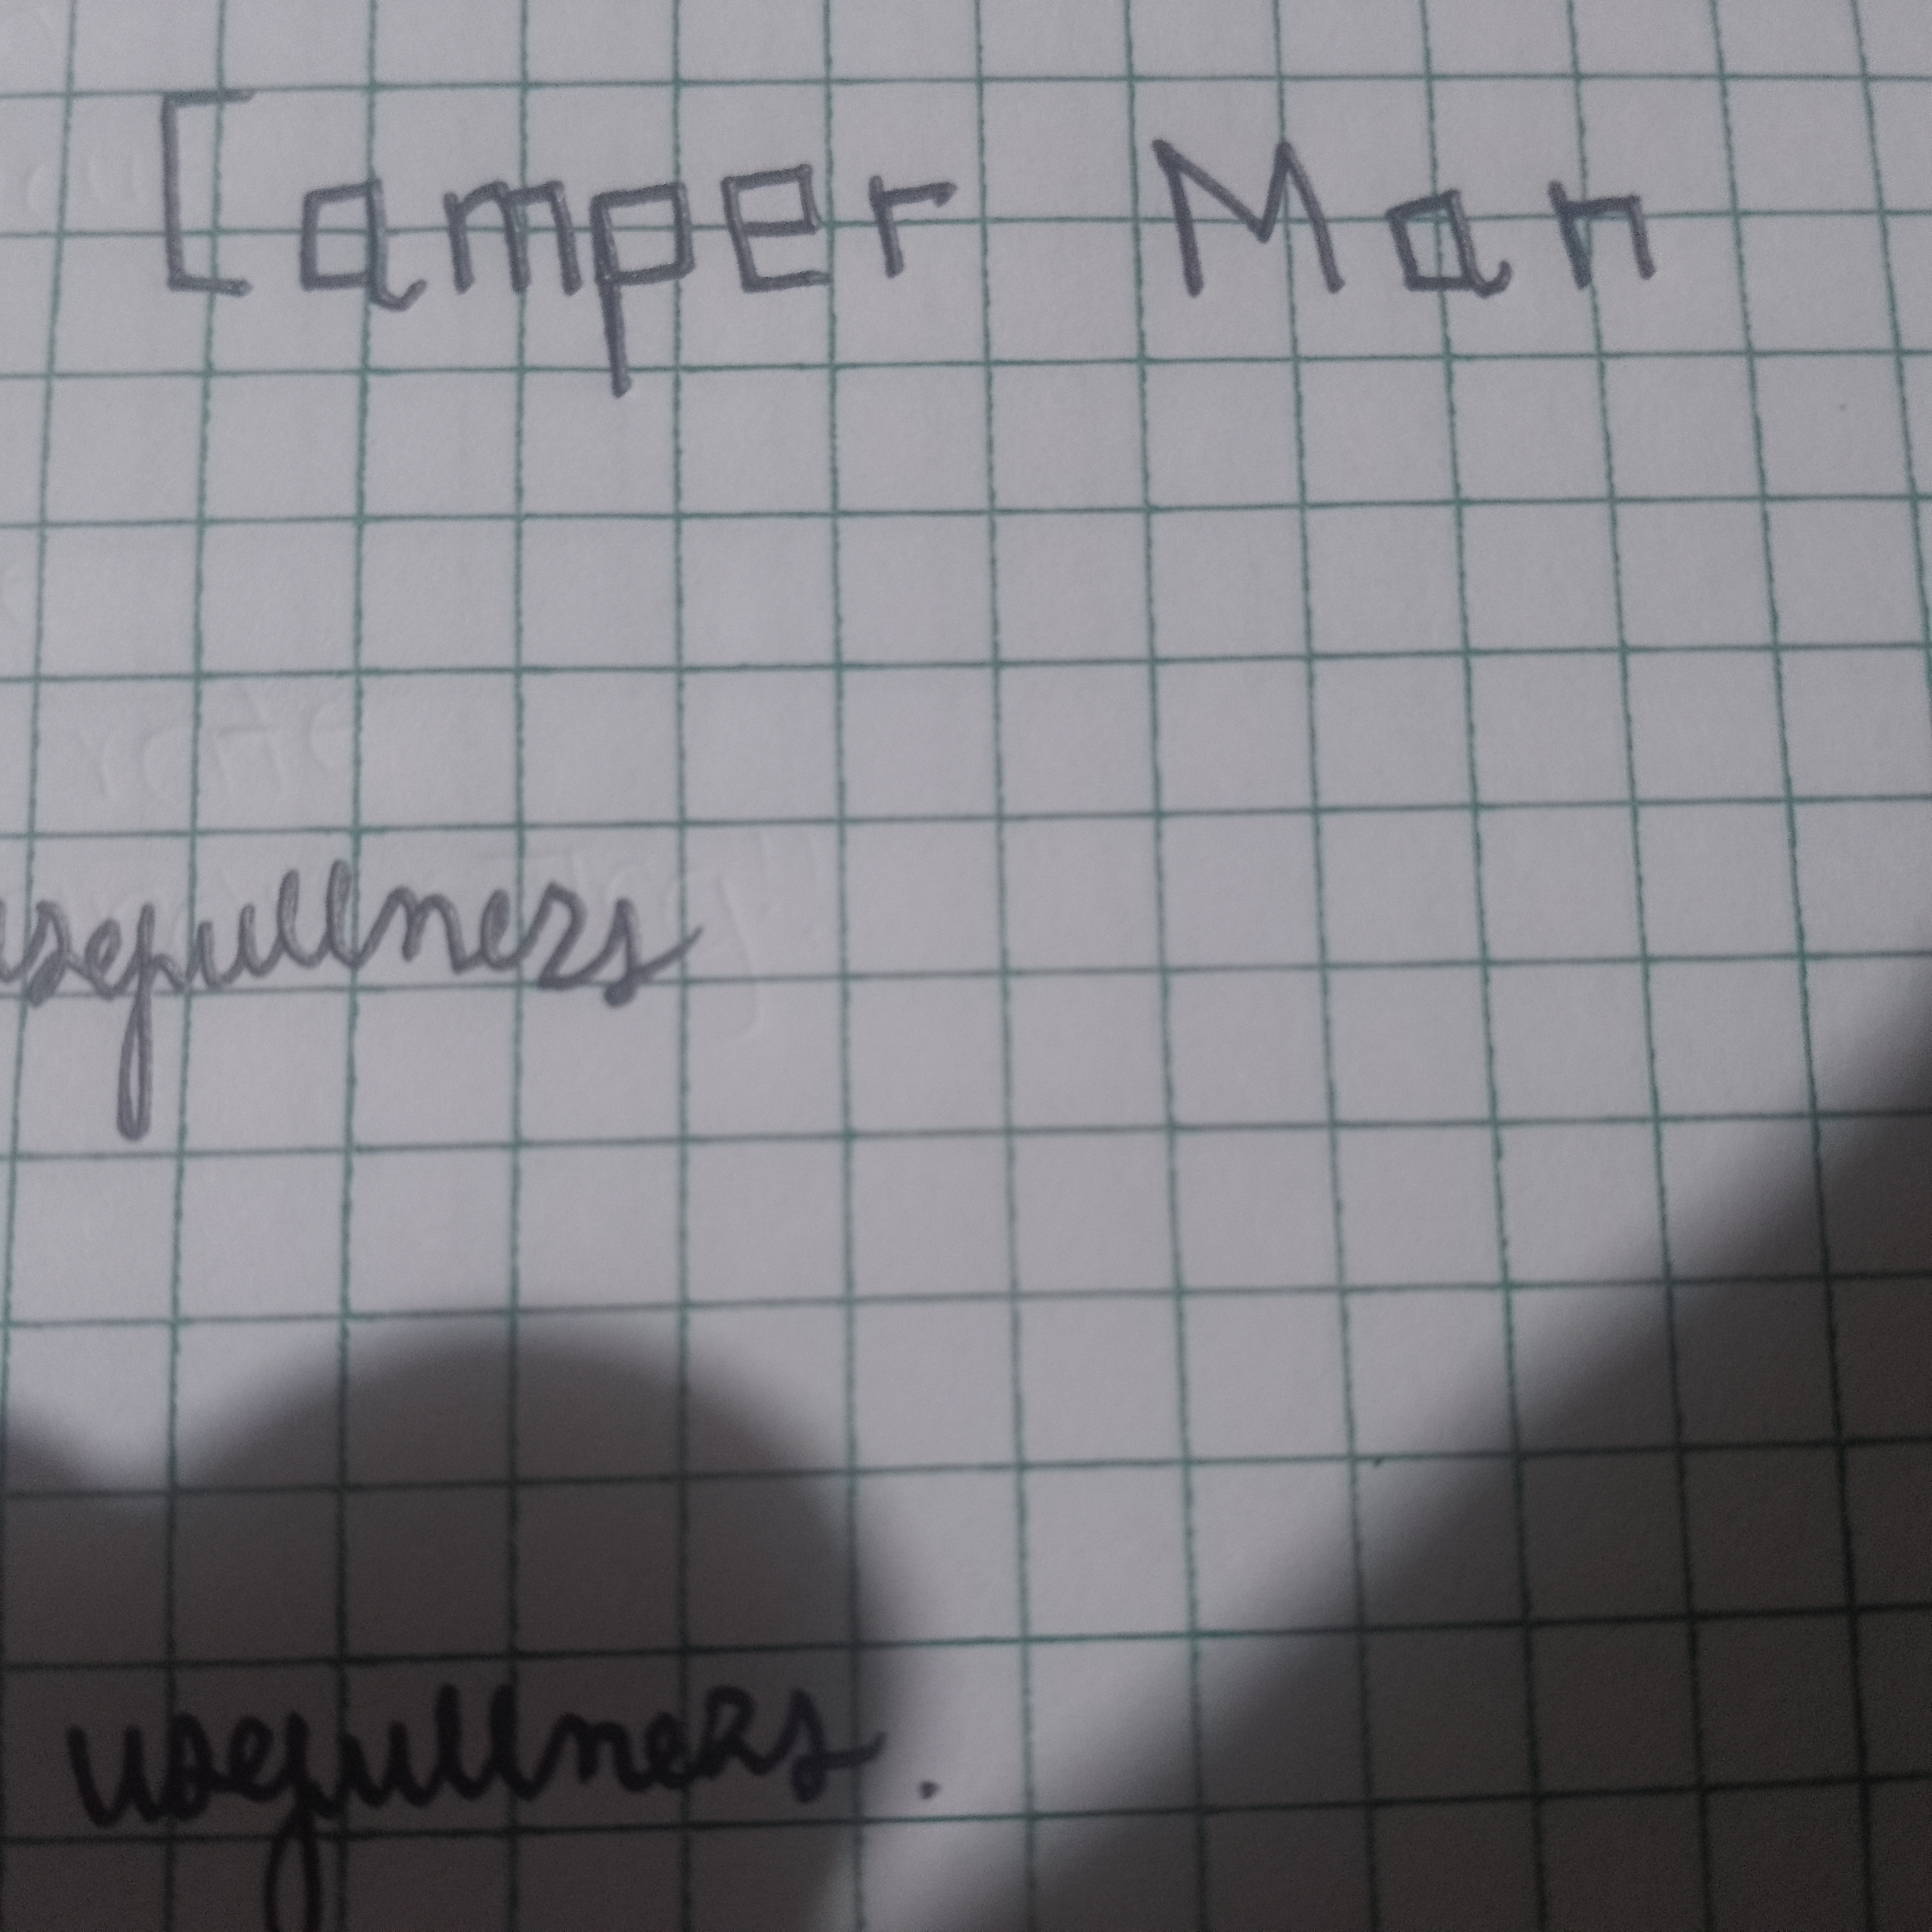 Camper Man
usefullness
usefullness.